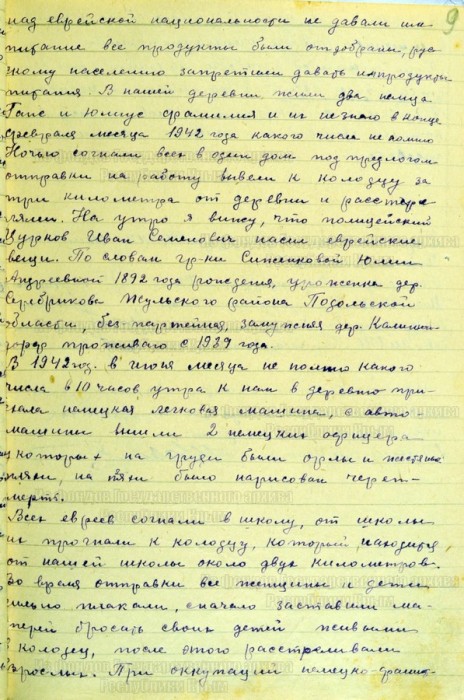 9
над еврейской национальности не давали им
питание все продукты были отобраны, рус
скому населению запретили давать им продукты
питания. В нашей деревни жили два немца
Ганс и Юлиус фамилия и их не знаю в конце
февраля месяца 1942 года какого числа не помню
Ночью согнали всех в один дом под предлогом
отправки на работу вывели к колодцу за
три километра от деревни и расстре
ляли. На утро я вижу, что полицейский
Цурков Иван Семенович насил еврейские
вещи. По словам гр-ки
Андреевной 1892 года рождения, уроженка дер.
района Подольской
области, без партейная, замужняя дер. Калинин-
проживаю с 1939 года.
В 1942 год. в июня месяца не помню какого
числа в 10 часов утра к нам в деревню при-
ехала немецкая легковая машина с авто
машины вышли 2 немецких офицера
у которых на груди были орлы и жестяные
бляхи, на было нарисован череп-
Всех евреев согнали в школу, от школы
их прогнали к колодцу, который находится
от нашей школы около двух километров.
Во время отправки все женщины и дети
сильно плакали, сначало заставили ма-
терей бросать своих детей живыми
в колодец, после этого расстреливали
взрослых. При оккупации немецко-фашис-